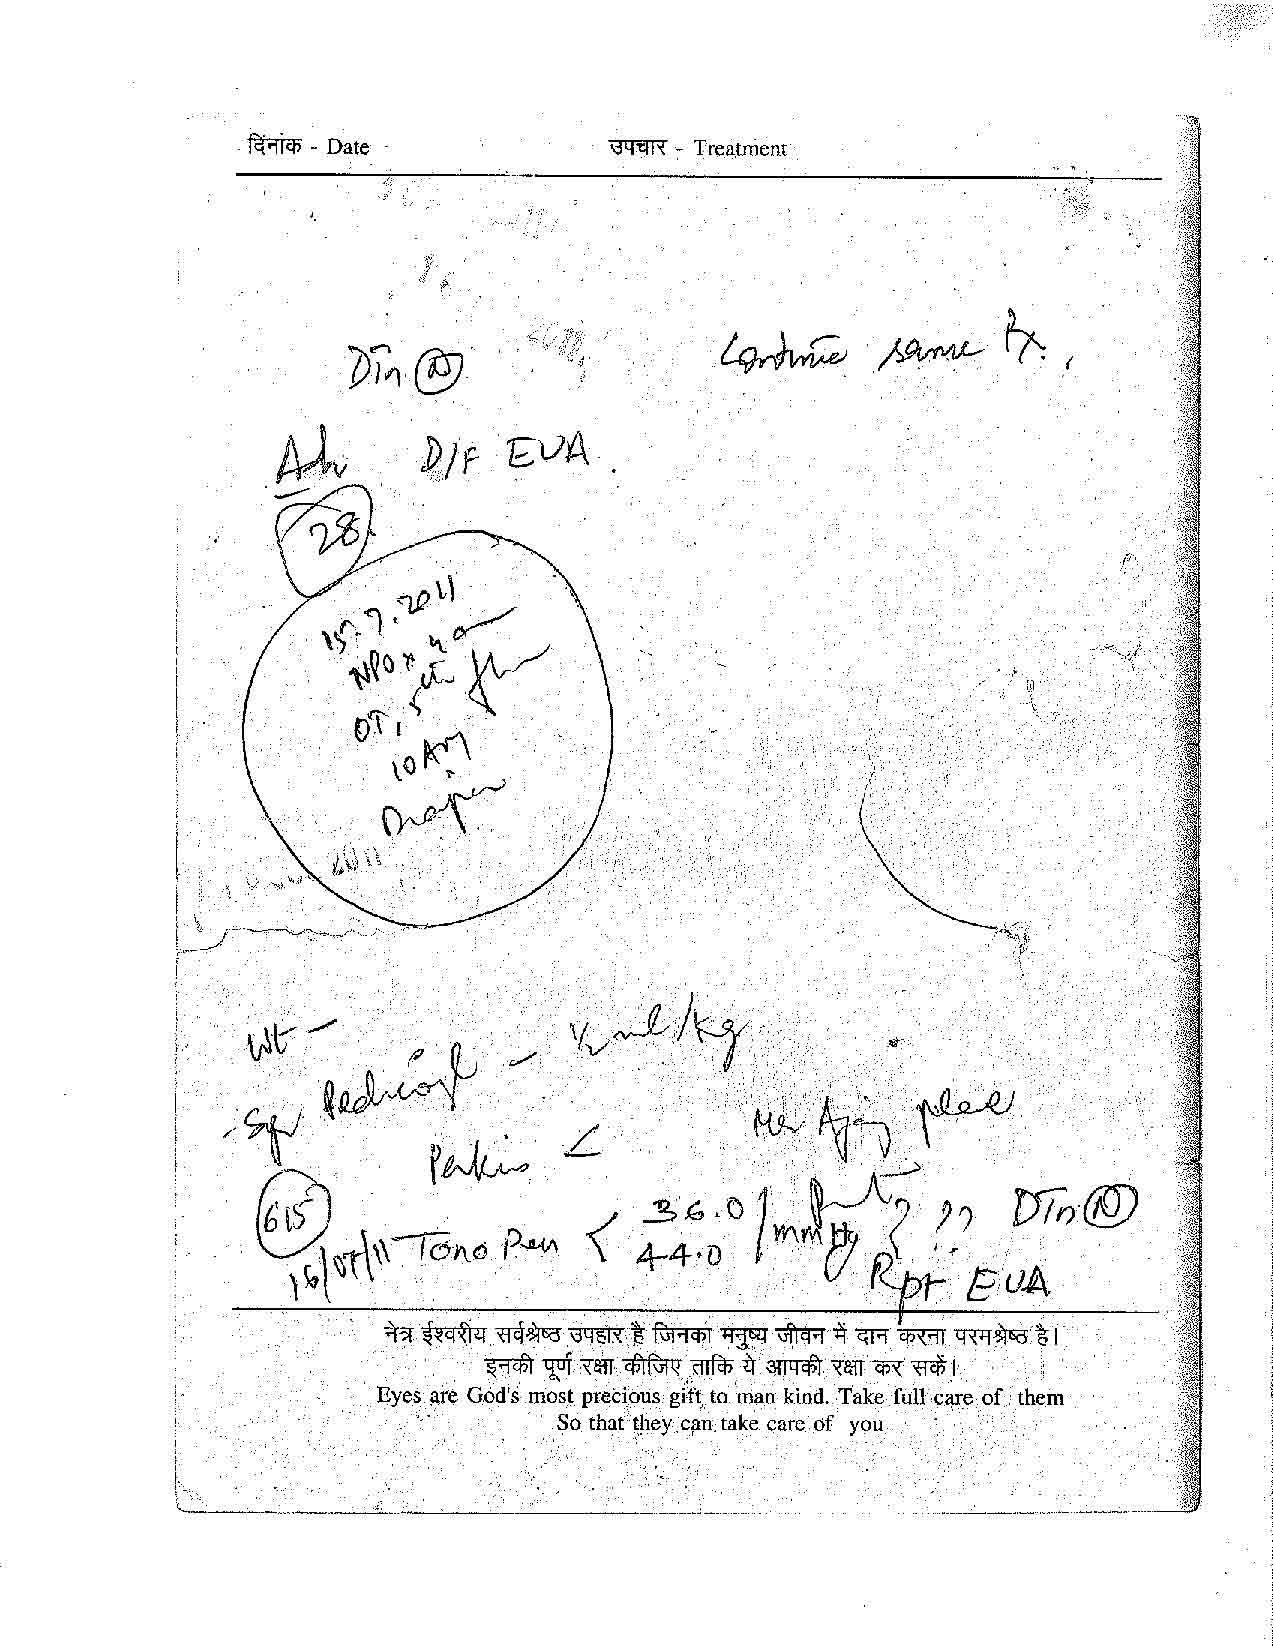 दिनांक - Date उपचार - Treatment
DTn (N) Continue same Rx.
Adv D/F EUA.
28
15.7.2011
NPO x 4 am
OT, 5th flr
10 AM
2011
Wt -
Syr Pedicloryl - ½ ml/kg
Perkins < Mr Ajay please
615 Tono Pen < 36.0 / 44.0 mmHg } ?? DTn (N)
16/07/11 Rpt EUA
नेत्र ईश्वरीय सर्वश्रेष्ठ उपहार है जिनका मनुष्य जीवन में दान करना परमश्रेष्ठ है।
इनकी पूर्ण रक्षा कीजिए ताकि ये आपकी रक्षा कर सकें।
Eyes are God's most precious gift to man kind. Take full care of them
So that they can take care of you